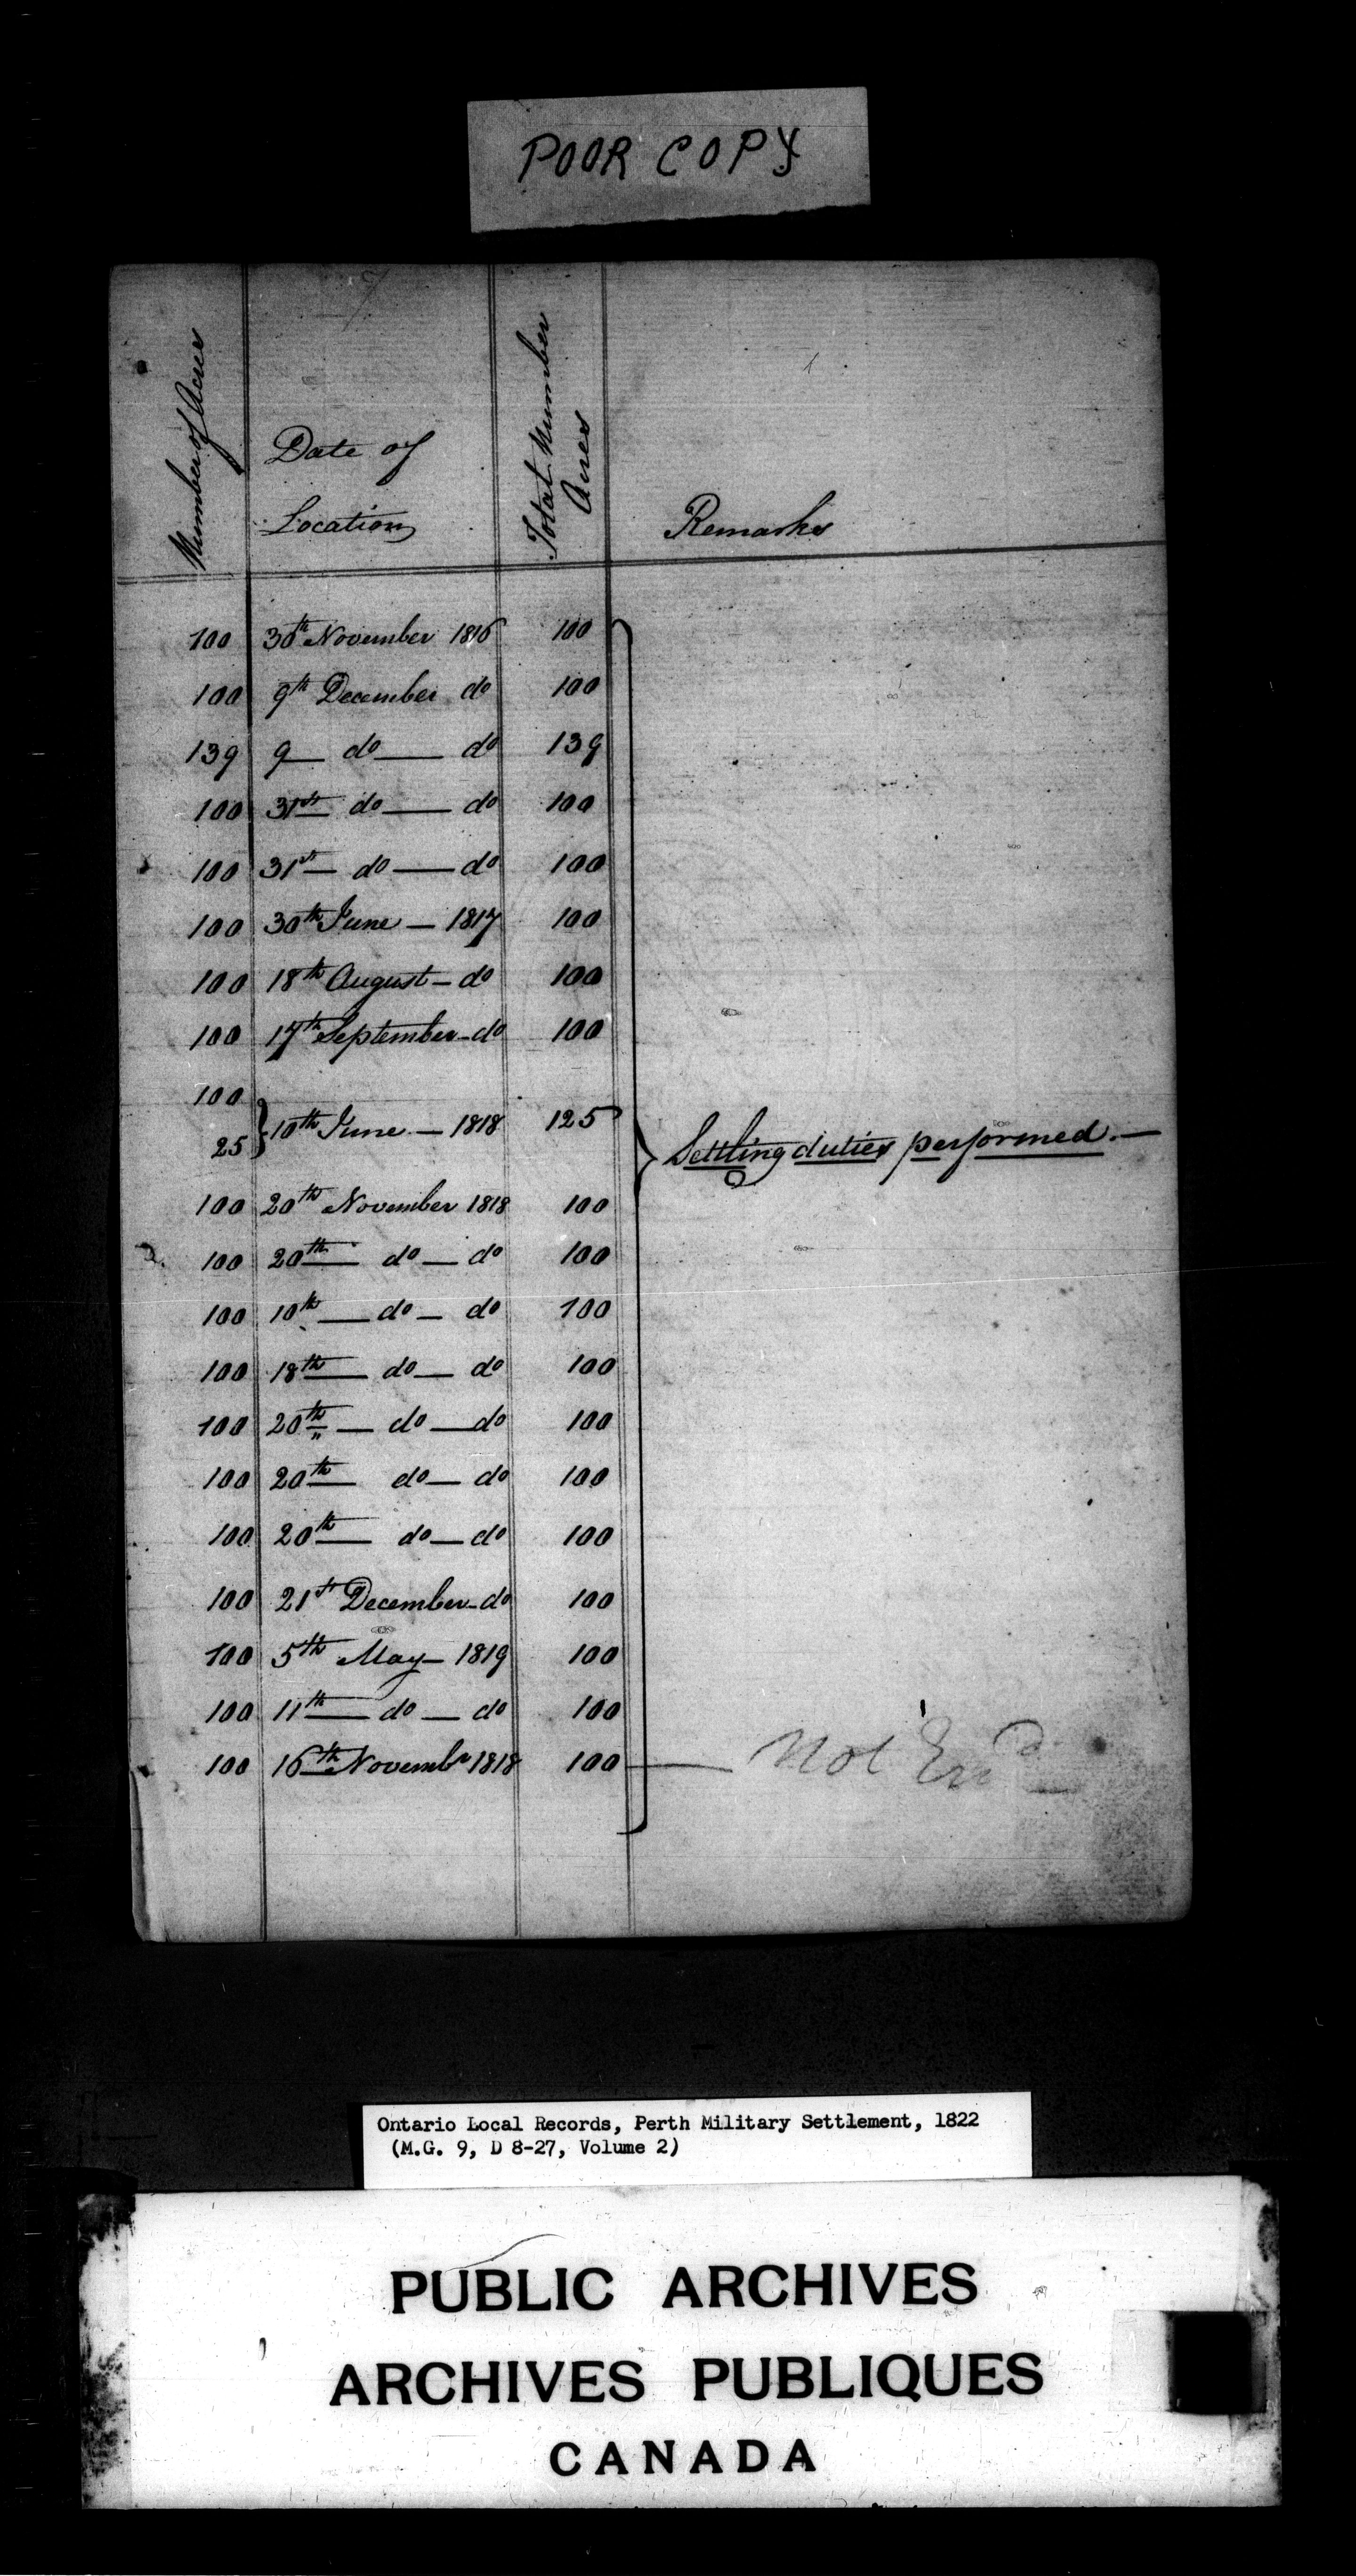 POOR COPY
Number of Acres
Date of
Location
Total Number
Acres
Remarks
100 30th November 1816 100
100 9th December do 100
139 9 — do — do 139
100 31st — do — do 100
100 31st — do — do 100
100 30th June — 1817 100
100 18th August — do 100
100 17th September - do 100
100
25 } 10th June — 1818 125
Settling duties performed. —
100 20th November 1818 100
100 20th — do — do 100
100 10th — do — do 100
100 18th — do — do 100
100 20th — do — do 100
100 20th — do — do 100
100 20th — do — do 100
100 21st December - do 100
100 5th May — 1819 100
100 11th — do — do 100
100 16th Novembr 1818 100 — Not
Ontario Local Records, Perth Military Settlement, 1822
(M.G. 9, D 8-27, Volume 2)
PUBLIC ARCHIVES
ARCHIVES PUBLIQUES
CANADA